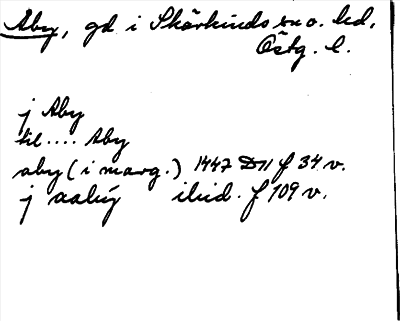 Åby, gd i Skärkinds sn o. hd,
Östg. l.
j Aby
til .... Aby
aby (i marg.) 1447 D11 f 34 v.
j aabÿ ibid. f 109 v.